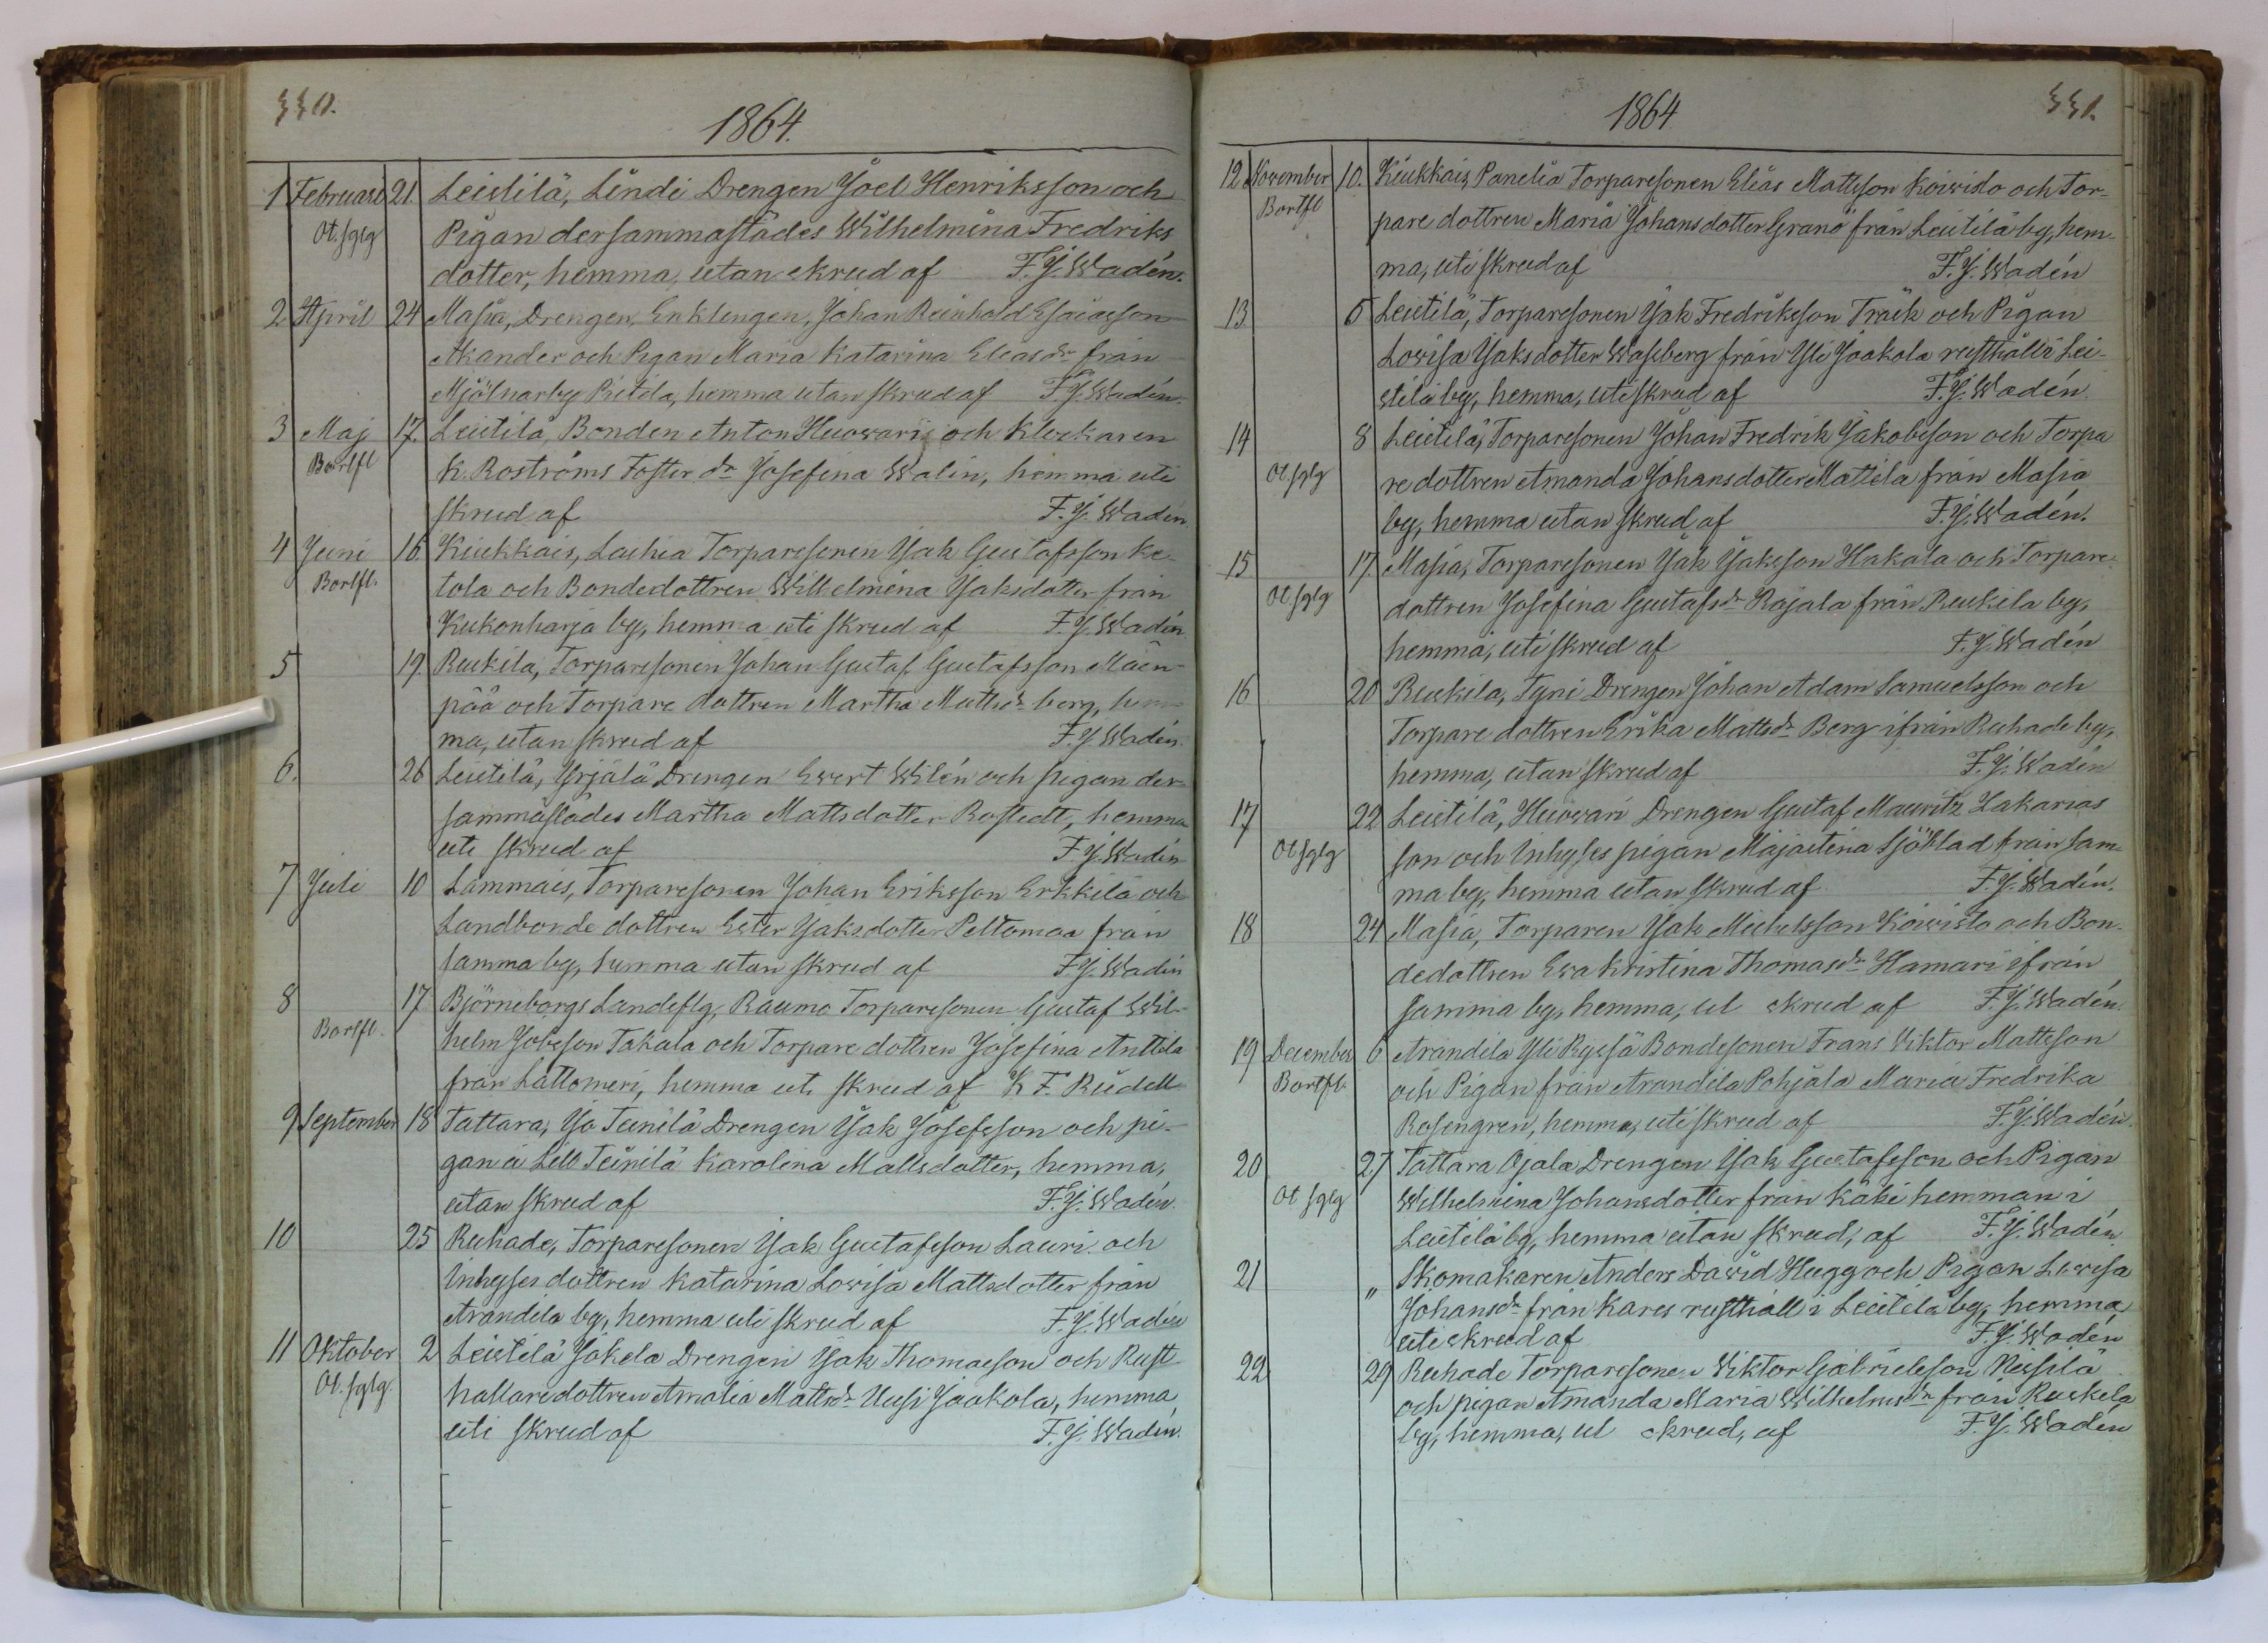 330.
1864.
1 Februari 21. Leistilä, Lindi Drengen Joel Henriksson och
Ot. sglg Pigan dersammastädes Wilhelmina Fredriks
dotter, hemma, utan skrud af F. J. Wadén.
2 April 24 Masia, Drengen, Enklingen, Johan Reinhold Esaiasson
Akander och Pigan Maria Katarina Eliasdr från
Mjölnarby Pietila, hemma utan skrud af F. J. Wadén.
3 Maj 17. Leistilä Bonden Anton Huowari och Klockaren
Bortfl K. Roströms Foster dr Josefina Walin, hemma uti
skrud af F. J. Wadén.
4 Juni 16. Kiukkais, Lauhia Torparesonen Jak Gustafsson Ke-
Bortfl. tola och Bondedottren Wilhelmina Jaksdotter från
Kukonharja by, hemma uti skrud af F. J. Wadén
5 19. Ruskila, Torparesonen Johan Gustaf Gustafsson Mäen-
pää och Torpare dottren Martha Mattsdr berg, hem-
ma, utan skrud af F. J. Wadén.
6. 26 Leistilä, Yrjälä Drengen Evert Wilén och pigan der-
sammastädes Martha Mattsdotter Rostedt, hemma
uti skrud af F. J. Wadén
7 Juli 10 Lammais, Torparesonen Johan Eriksson Erkkilä och
Landbonde dottren Ester Jaksdotter Peltomaa från
samma by, hemma utan skrud af F. J. Wadén
8 17 Björneborgs Landsflg, Raumo Torparesonen Gustaf Wil-
Bortfl. helm Jobsson Takala och Torpare dottren Josefina Anttila
från Lattomeri, hemma uti skrud af K F. Rudell
9 September 18 Tattara, Yo Teinilä Drengen Jak Josefsson och pi-
gan å Lill Teinilä Karolina Mattsdotter, hemma,
utan skrud af F. J. Wadén.
10 25 Ruhade, Torparesonen Jak Gustafsson Lauri och
Inhyses dottren Katarina Lovisa Mattsdotter från
Arandila by, hemma uti skrud af F. J. Wadén
11 Oktober 2 Leistilä Jokela Drengen Jak Thomasson och Rust
Ot. sglg. hållaredottren Amalia Mattsdr Uusi Jaakola, hemma,
uti skrud af F. J. Wadén.
331.
1864
12 November 10. Kiukkais, Panelia Torparesonen Elias Mattsson Koivisto och Tor-
Bortfl pare dottren Maria Johansdotter Granö från Leistilä by, hem-
ma, uti skrud af F. J. Wadén
13. 6 Leistilä, Torparesonen Jak Fredriksson Träsk och Pigan
Lovisa Jaksdotter Wasberg från Yli Jaakola rusthåll i Lei-
stilä by, hemma, uti skrud af F. J. Wadén.
14 8 Leistilä, Torparesonen Johan Fredrik Jakobsson och Torpa
Ot. sglg re dottren Amanda Johansdotter Mattila från Masia
by, hemma utan skrud af F. J. Wadén.
15 17. Masia, Torparesonen Jak Jaksson Hakala och Torpare-
Ot. sglg dottren Josefina Gustafsdr Rajala från Ruskila by,
hemma, uti skrud af F. J. Wadén
16 20 Ruskila, Tyni Drengen Johan Adam Samuelsson och
Torpare dottren Erika Mattsdr Berg ifrån Ruhade by,
hemma, utan skrud af F. J. Wadén
17 22 Leistilä, Huowari Drengen Gustaf Mauritz Zakarias
Ot sglg son och Inhyses pigan Majastina Sjöblad från sam-
ma by, hemma utan skrud af F. J. Wadén.
18 24 Masia, Torparen Jak Michelsson Koivisto och Bon-
dedottren Eva Kristina Thomasdr Hamari ifrån
samma by, hemma, ut skrud af F. J. Wadén.
19 December 6 Arandila Yli Ryssä Bondesonen Frans Viktor Mattsson
Bortfl. och Pigan från Arandila Pohjala Maria Fredrika
Rosengren, hemma, uti skrud af F. J. Wadén.
20 27 Tattara Ojala Drengen Jak Gustafsson och Pigan
Ot sglg Wilhelmina Johansdotter från Käki hemman i
Leistilä by, hemma utan skrud, af F. J. Wadén
21 " Skomakaren Anders David Hugg och Pigan Lovisa
Johansdr från Kares rusthåll i Leistilä by, hemma
uti skrud af F. J. Wadén
22 29 Ruhade Torparesonen Viktor Gabrielsson Nissilä
och pigan Amanda Maria Wilhelmsdr från Ruskila
by, hemma, ut skrud, af F. J. Wadén